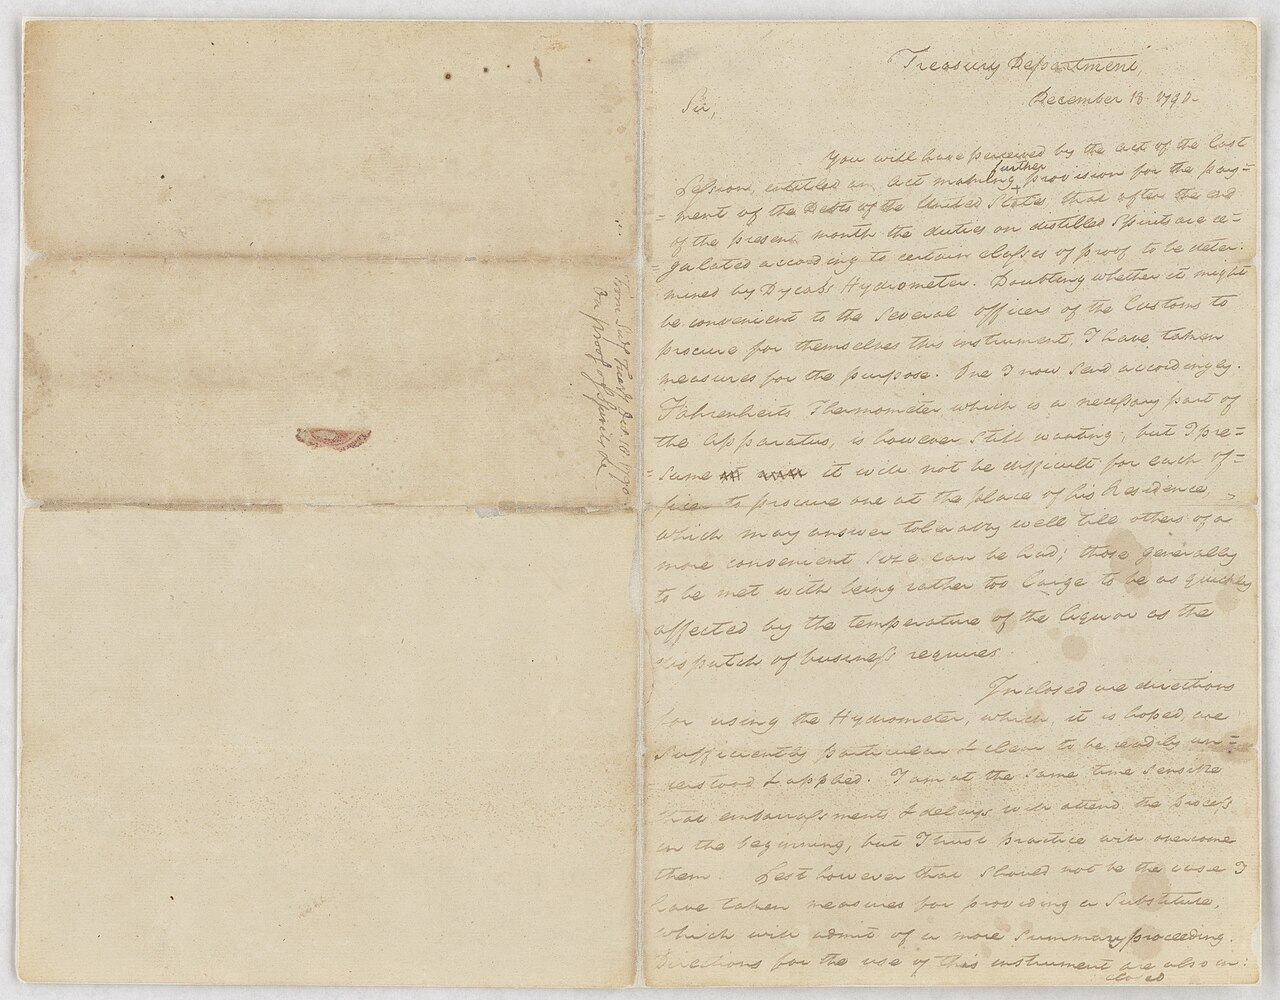 Treasury Department,
December 18 1790.
Sir,
You will have perceived by the act of the last
Session, entitled an Act making further provision for the pay=
=ment of the Debts of the United States, that after the end
of the present month the duties on distilled Spirits are re=
=gulated according to certain classes of proof to be deter:
mined by Dycas's Hydrometer. Doubting whether it might
be convenient to the several officers of the Customs to
procure for themselves this instrument, I have taken
measures for the purpose. One I now send accordingly.
Fahrenheits Thermometer which is a necessary part of
the apparatus, is however still wanting; but I pre=
=sume it will not be difficult for each of=
ficer to procure one at the place of his Residence,
which may answer tolerably well till others of a
more convenient size can be had; those generally
to be met with being rather too large to be as quickly
affected by the temperature of the liquor as the
dispatch of business requires.
Inclosed are directions
for using the Hydrometer, which, it is hoped, are
sufficiently particular & clear to be readily un=
derstood & applied. I am at the same time sensible
that embarrassments & delays will attend the process
in the beginning, but I trust practice will overcome
them. Lest however that should not be the case I
have taken measures for providing a Substitute,
which will admit of a more summary proceeding.
Directions for the use of this instrument are also in:
closed
from Treasy Dec 18 1790
on proof of Spirits &c